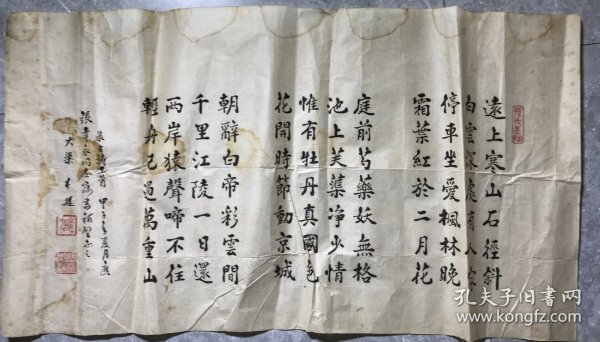 遠上寒山石徑斜
白雲深處有人家
停車坐愛楓林晚
霜葉紅於二月花
庭前芍藥妖無格
池上芙蕖净少情
惟有牡丹真國色
花開時節動京城
朝辭白帝彩雲間
千里江陵一日還
兩岸猿聲啼不住
輕舟已過萬重山
甲子年夏月
張
同志
大梁
孔夫子旧书网
www.kongfz.com